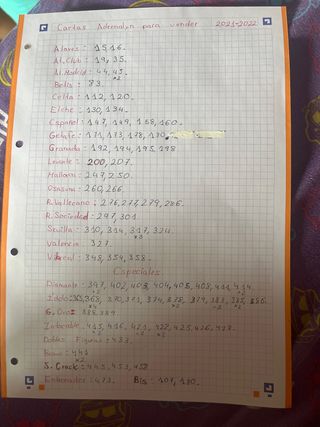 Cartas Adrenalyn para vender 2021-2022
Alaves: 15,16.
At. Club: 19, 35.
At. Madrid: 44, 45.
x2
Betis: 83.
Celta: 112, 120.
Elche: 130, 134.
Español: 147, 149, 158, 160.
Getafe: 171, 173, 178, 180.
Granada: 192, 194, 195, 198
Levante: 200, 207.
Mallorca: 247, 250.
Osasuna: 260, 266.
R. Vallecano: 276, 277, 279, 286.
R. Sociedad: 297, 301.
Sevilla: 310, 314, 317, 324.
x3
Valencia: 327.
V.real: 348, 354, 358.
Especiales
Diamante: 347, 402, 403, 404, 405, 408, 411, 414.
Idolo: 368, 370, 371, 374, 378, 379, 383, 385, 386.
G. Oro: 388, 389.
Imborrable: 415, 416, 421, 422, 425, 426, 428.
Dobles Figuras: 433.
Bravo: 441
x2
S. Crack: 445, 453, 458
Entrenador: 473. Bis: 107, 180.